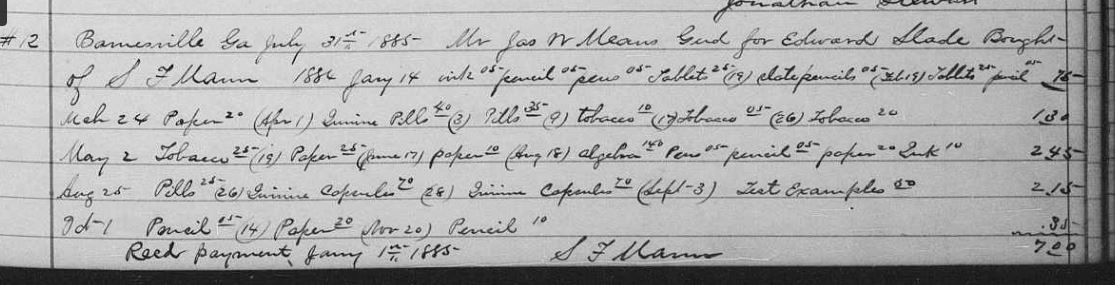 Jonathan Stewart
#12 Barnesville Ga July 31st 1885 Mr Jas W Means Gud for Edward Slade Bought
of S F Mann 1884 Jany 14 ink 05 pencil 05 pens 05 Tablets 25 (19) slate pencils 05 (Feb 19) Tablets 25 pncil 05 75
Mch 24 Paper 20 (Apr 1) Quinine Pills 40 (3) Pills 35 (9) tobacco 10 (17) Tobacco 05 (26) Tobacco 20 1 30
May 2 Tobacco 25 (19) Paper 25 (June 17) paper 10 (Aug 18) algebra 140 Pens 05 pencil 05 paper 20 Ink 10 2 45
Aug 25 Pills 25 (26) Quinine Capsules 70 (28) Quinine Capsules 70 (Sept-3) Test Examples 50 2.15
Oct-1 Pencil 05 (14) Paper 20 (Nov 20) Pencil 10 .35
Recd payment, Jany 1st 1885 S F Mann 7.00